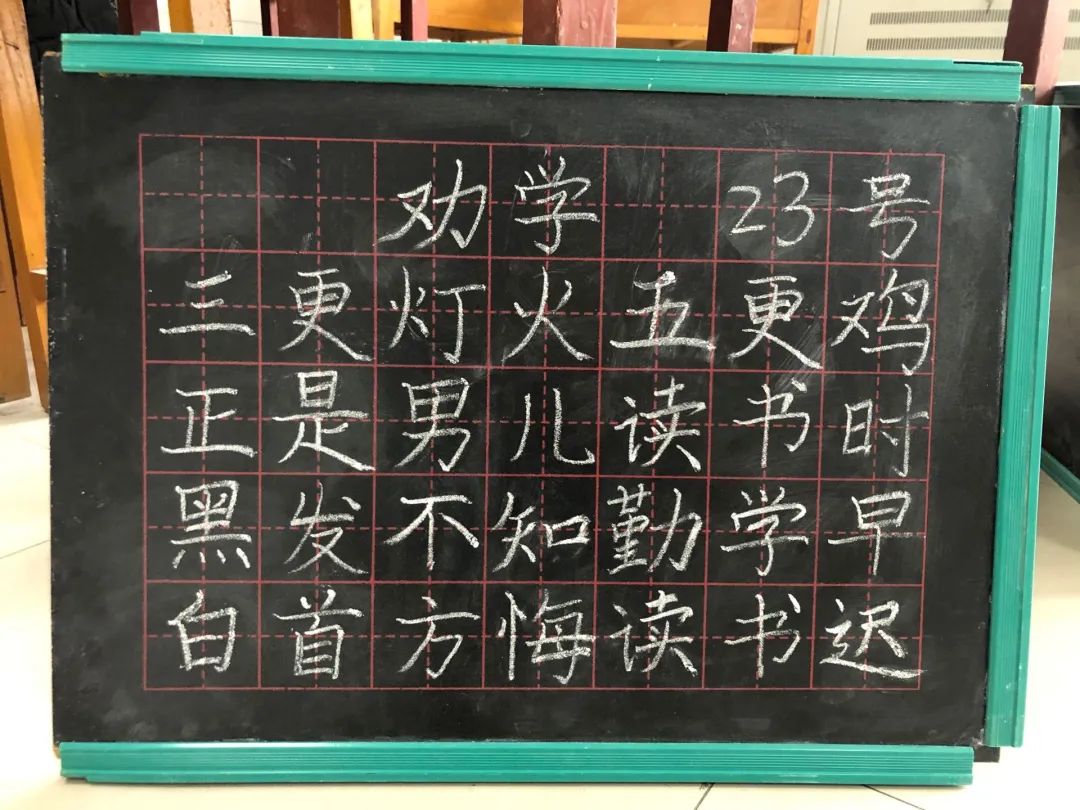 劝学 23号
三更灯火五更鸡
正是男儿读书时
黑发不知勤学早
白首方悔读书迟